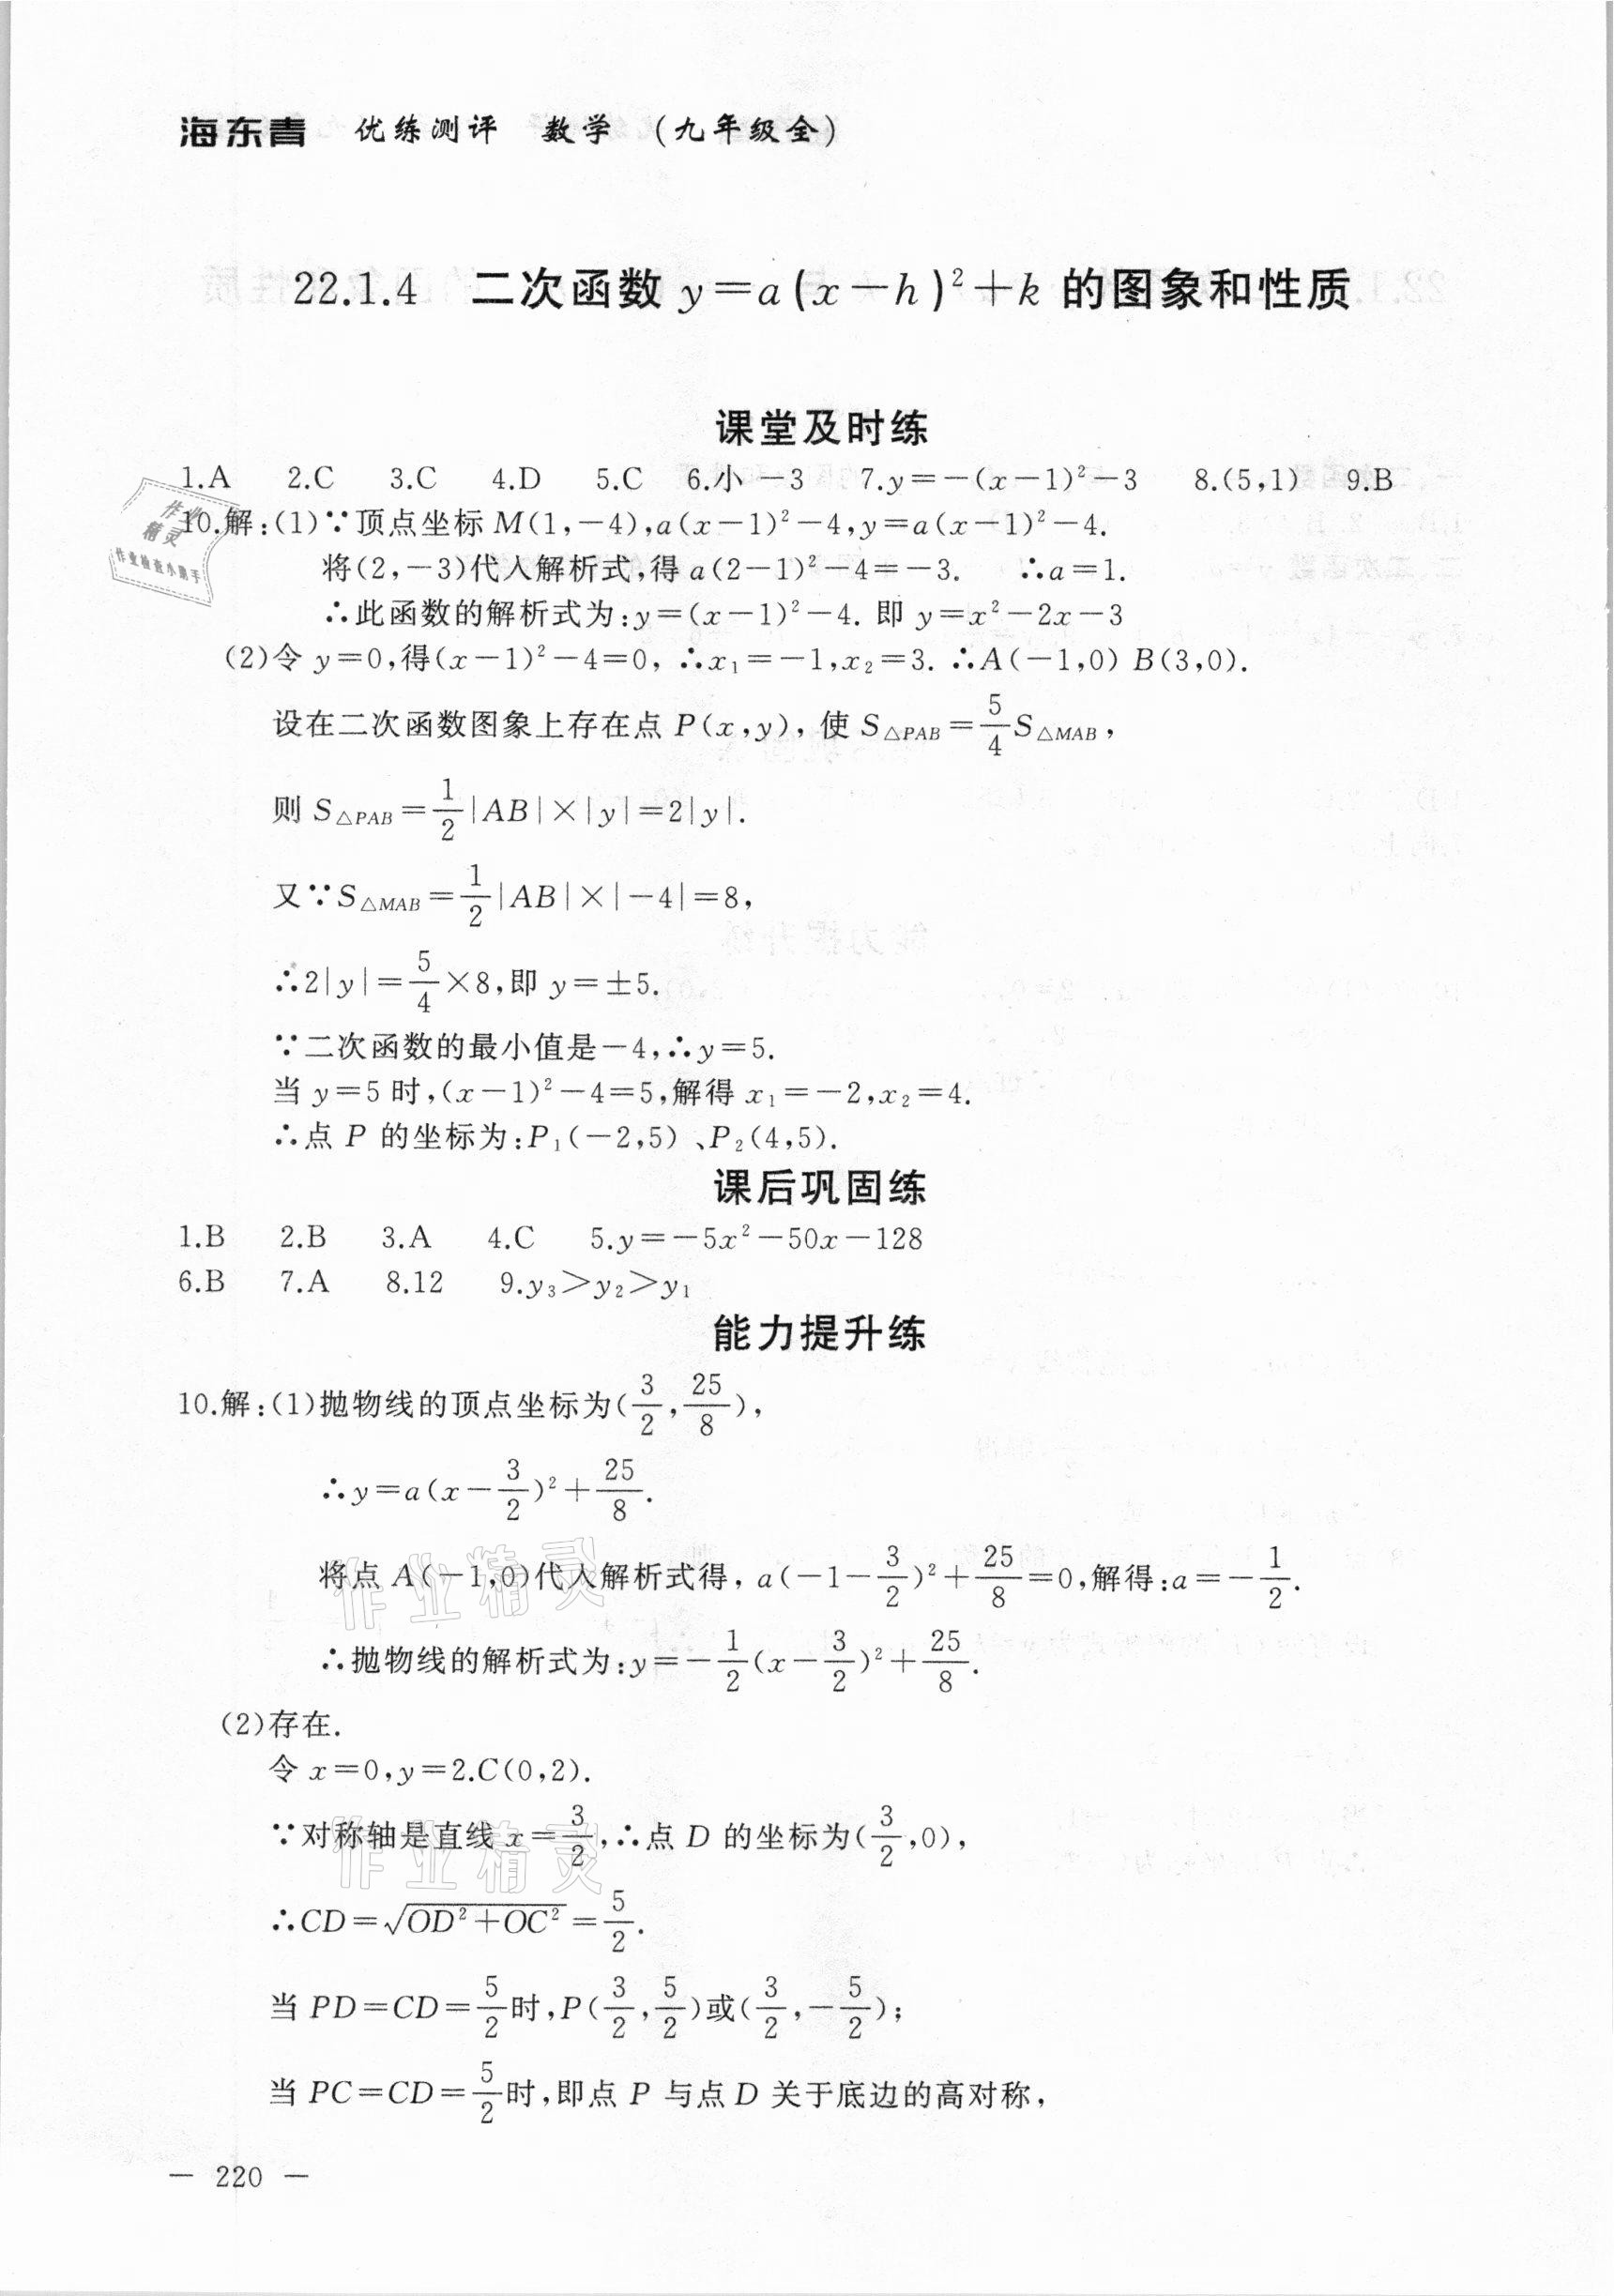 海东青 优练测评 数学 (九年级全)
22.1.4 二次函数 y=a(x-h)²+k 的图象和性质
课堂及时练
1.A 2.C 3.C 4.D 5.C 6.小 -3 7.y=-(x-1)²-3 8.(5,1) 9.B
10.解:(1)∵顶点坐标 M(1,-4),a(x-1)²-4,y=a(x-1)²-4.
将(2,-3)代入解析式,得 a(2-1)²-4=-3. ∴a=1.
∴此函数的解析式为:y=(x-1)²-4. 即 y=x²-2x-3
(2)令 y=0,得(x-1)²-4=0, ∴x₁=-1,x₂=3. ∴A(-1,0) B(3,0).
设在二次函数图象上存在点 P(x,y), 使 S△PAB=5/4S△MAB,
则 S△PAB=1/2|AB|×|y|=2|y|.
又∵S△MAB=1/2|AB|×|-4|=8,
∴2|y|=5/4×8,即 y=±5.
∵二次函数的最小值是-4,∴y=5.
当 y=5 时,(x-1)²-4=5,解得 x₁=-2,x₂=4.
∴点 P 的坐标为:P₁(-2,5)、P₂(4,5).
课后巩固练
1.B 2.B 3.A 4.C 5.y=-5x²-50x-128
6.B 7.A 8.12 9.y₃>y₂>y₁
能力提升练
10.解:(1)抛物线的顶点坐标为(3/2,25/8),
∴y=a(x-3/2)²+25/8.
将点 A(-1,0)代入解析式得, a(-1-3/2)²+25/8=0,解得:a=-1/2.
∴抛物线的解析式为:y=-1/2(x-3/2)²+25/8.
(2)存在.
令 x=0,y=2.C(0,2).
∵对称轴是直线 x=3/2,∴点 D 的坐标为(3/2,0),
∴CD=√(OD²+OC²)=5/2.
当 PD=CD=5/2时,P(3/2,5/2)或(3/2,-5/2);
当 PC=CD=5/2时,即点 P 与点 D 关于底边的高对称,
- 220 -
作业
精灵
作业检查小助手
作业精灵
作业精灵